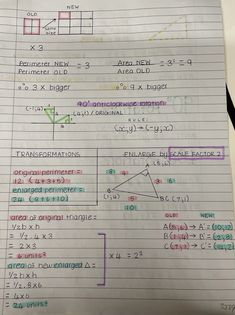 OLD
NEW
same size
x 3
Perimeter NEW = 3
Perimeter OLD
Area NEW = 3² = 9
Area OLD
∴ 3 x bigger
∴ 9 x bigger
90° anticlockwise rotation:
(-1,4)
(4,1) / ORIGINAL
RULE:
(x,y) → (-y,x)
TRANSFORMATIONS
ENLARGE by SCALE FACTOR 2
original perimeter =
12 (4+3+5)
enlarged perimeter =
24 (8+6+10)
A (5,6)
B (1,4)
C (7,1)
area of original triangle =
½ b x h
= ½ . 4 x 3
= 2 x 3
= 6 units²
area of new enlarged Δ =
½ b x h
= ½ . 8 x 6
= 4 x 6
= 24 units²
x 4 = 2²
OLD!
NEW!
A (5,6) → A' = (10,12)
B (1,4) → B' = (2,8)
C (7,1) → C' = (14,2)